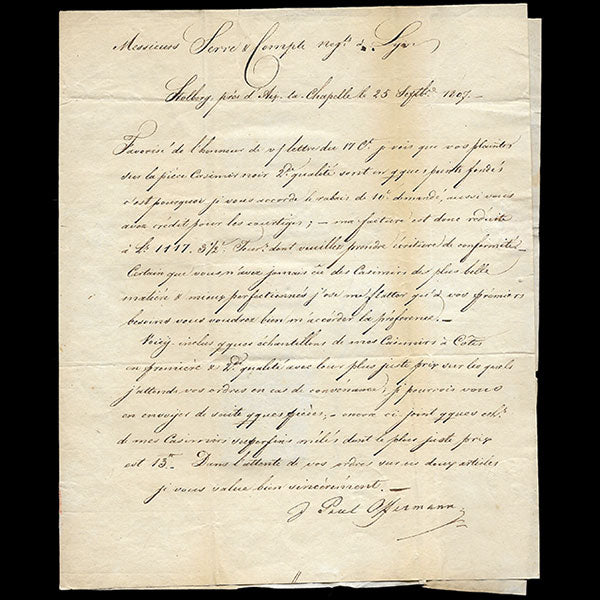 Messieurs Serre & Compe negts à Lyon
Stolberg, près d'Aix-la-Chapelle le 25 Septbre 1807.-
Favorisé de l'honneur de v/ lettre du 17 Ct. je vois que vos plaintes
sur la pièce Casimir noir 2de qualité sont en qque pointe fondés
c'est pourquoi je vous accorde le rabais de 10 demandé, aussi vous
avez crédit pour les courtiges; - ma facture est donc réduite
à 1117. dont veuillez prendre écriture de conformité.-
Certain que vous n'avez jamais eû des Casimirs des plus belle
matière & mieux perfectionnés j'ose me flatter qu'à vos premiers
besoins vous voudrez bien m'accorder la préférence.-
Voicy inclus qques échantillons de mes Casimirs à Côtes
en première & 2de qualité avec leur plus juste prix sur lesquels
j'attends vos ordres en cas de convenance; je pourrois vous
en envoyer de suite qques pièces,- encore ci joint qques
de mes Casimirs superfins mêlés dont le plus juste prix
est 13.- Dans l'attente de vos ordres sur ces deux articles
je vous salue bien sincèrement.-
J Paul Offermann